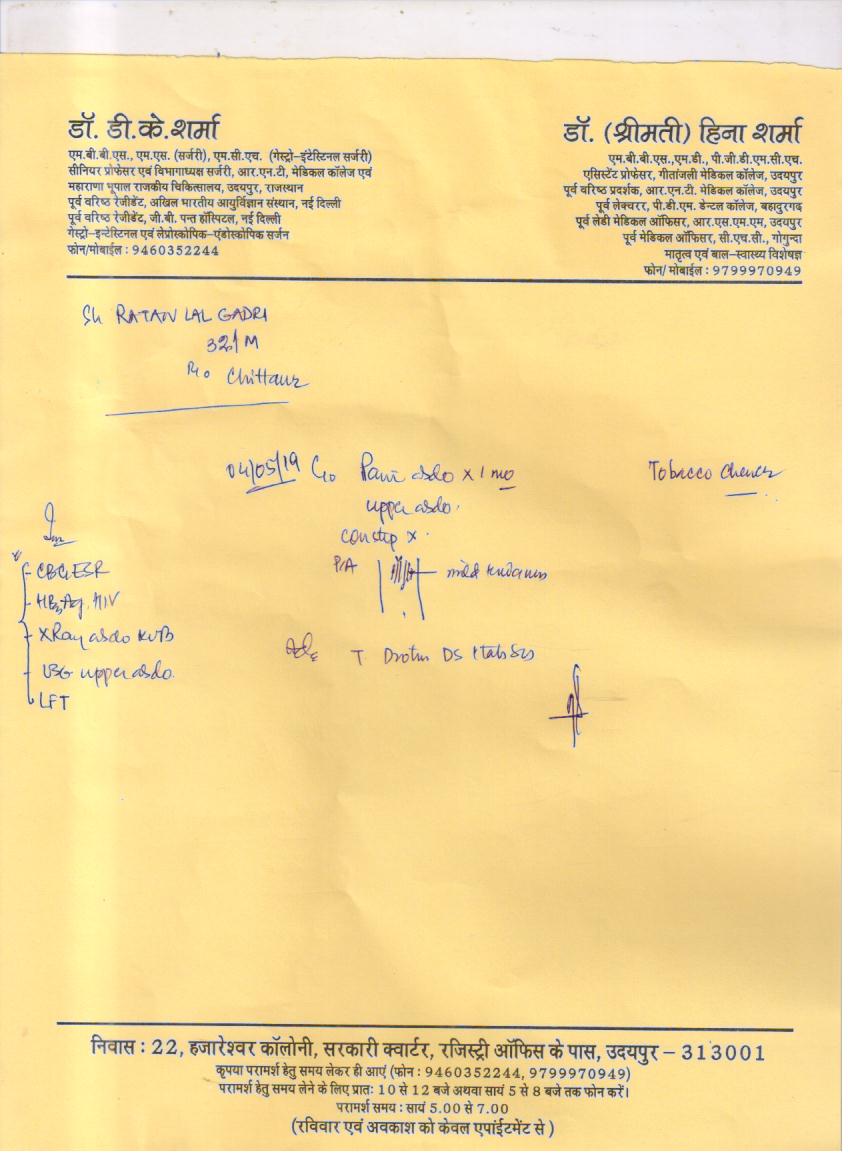 डॉ. डी.के.शर्मा
एम.बी.बी.एस., एम.एस. (सर्जरी), एम.सी.एच. (गेस्ट्रो-इंटेस्टिनल सर्जरी)
सीनियर प्रोफेसर एवं विभागाध्यक्ष सर्जरी, आर.एन.टी. मेडिकल कॉलेज एवं
महाराणा भूपाल राजकीय चिकित्सालय, उदयपुर, राजस्थान
पूर्व वरिष्ठ रेजीडेंट, अखिल भारतीय आयुर्विज्ञान संस्थान, नई दिल्ली
पूर्व वरिष्ठ रेजीडेंट, जी.बी. पन्त हॉस्पिटल, नई दिल्ली
गेस्ट्रो-इन्टेस्टिनल एवं लेप्रोस्कोपिक-एंडोस्कोपिक सर्जन
फोन/मोबाईल : 9460352244
डॉ. (श्रीमती) हिना शर्मा
एम.बी.बी.एस.,एम.डी., पी.जी.डी.एम.सी.एच.
एसिस्टेंट प्रोफेसर, गीतांजली मेडिकल कॉलेज, उदयपुर
पूर्व वरिष्ठ प्रदर्शक, आर.एन.टी. मेडिकल कॉलेज, उदयपुर
पूर्व लेक्चरर, पी.डी.एम. डेन्टल कॉलेज, बहादुरगढ़
पूर्व लेडी मेडिकल ऑफिसर, आर.एस.एम.एम, उदयपुर
पूर्व मेडिकल ऑफिसर, सी.एच.सी., गोगुन्दा
मातृत्व एवं बाल-स्वास्थ्य विशेषज्ञ
फोन/ मोबाईल : 9799970949
Sh RATAN LAL GADRI
32/M
R/o Chittaur
04/05/19 C/o Pain abdo x 1 mo
Tobacco Chewer
upper abdo.
Constip x
P/A mild
Inv
CBC, ESR
HBsAg, HIV
X Ray abdo KUB
USG upper abdo.
LFT
Adv T. Drotin DS 1 tab SOS
निवास : 22, हजारेश्वर कॉलोनी, सरकारी क्वार्टर, रजिस्ट्री ऑफिस के पास, उदयपुर – 313001
कृपया परामर्श हेतु समय लेकर ही आएं (फोन : 9460352244, 9799970949)
परामर्श हेतु समय लेने के लिए प्रातः 10 से 12 बजे अथवा सायं 5 से 8 बजे तक फोन करें।
परामर्श समय : सायं 5.00 से 7.00
(रविवार एवं अवकाश को केवल एपांईटमेंट से )